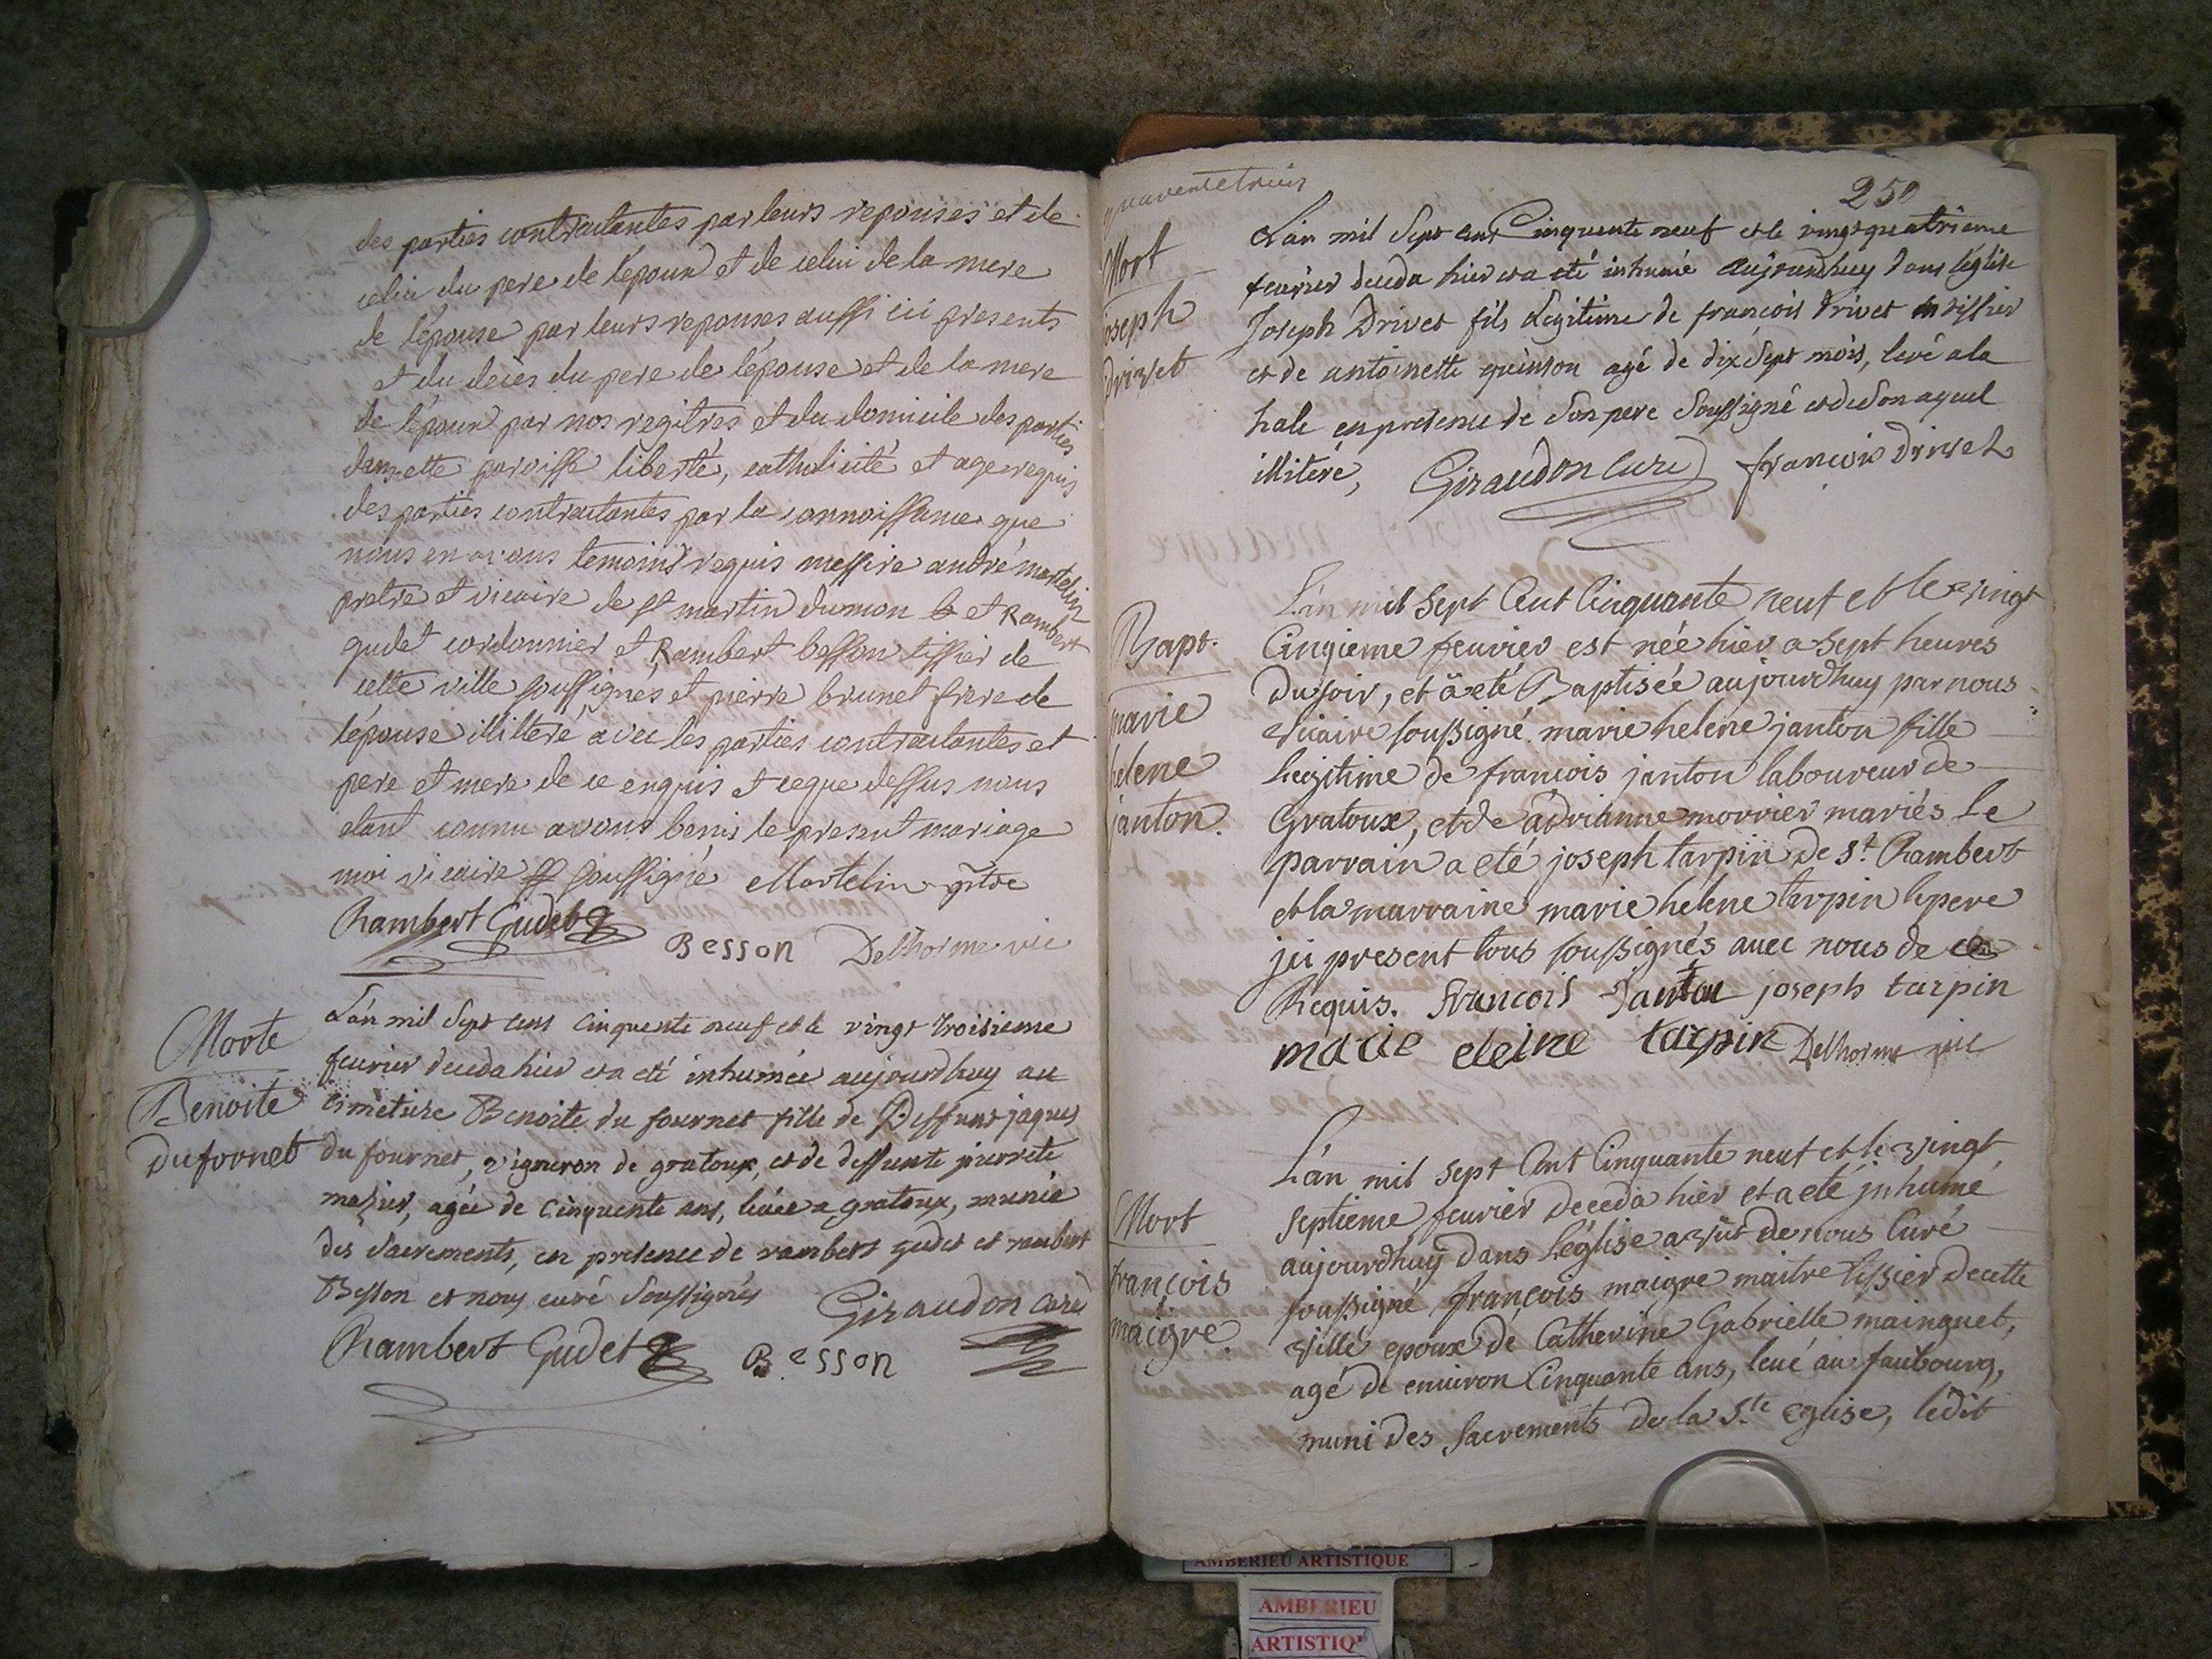 des parties contractantes par leurs reponses et de
celui du pere de l'epoux et de celui de la mere
de l'épouse par leurs reponses aussi ici presents
et du decès du pere de l'épouse et de la mere
de l'époux par nos regitres et du domicile des parties
dans cette paroisse liberté, catholicité et age requis
des parties contractantes par la connoissance que
nous en avons temoins requis messire andré martelin
pretre et vicaire de st martin dumon et Rambert
gudet cordonnier et Rambert besson tissier de
cette ville soussignés et pierre brunet frere de
lépouse illiteré avec les parties contractantes et
pere et mere de ce enquis et ceque dessus nous
etant connu avons benis le present mariage
moi vicaire soussigné Martelin ptre
Rambert Gudet Besson Delhorme vic
Morte
Benoite
Dufornet
L'an mil Sept cens cinquante neuf et le vingt troisieme
feurier deceda hier et a eté inhumée aujourdhuy au
cimetiere Benoite du fournet fille de Deffunt jaques
du fournet, vigneron de gratoux, et de deffunte pierrete
mesier, agée de cinquente ans, levée a gratoux, munie
des Sacrements, en presence de rambert gudet et rambert
Besson et nous curé Soussignés Giraudon curé
Rambert Gudet Besson
quarentetrois
250
Mort
joseph
drivet
L'an mil Sept cens Cinquente neuf et le vingtquatrieme
feurier deceda hier et a eté inhumé aujourdhuy dans l'église
Joseph Drivet fils Legitime de francois drivet tissier
et de antoinette quinson agé de dix Sept mois, levé a la
hale en presence de Son pere Soussigné et de Son ayeul
illiteré, Giraudon curé francois drivet
Bapt.
marie
helene
janton.
L'an mil Sept Cent Cinquante neuf et le vingt
Cinqieme feurier est née hier a Sept heures
du soir, et a eté Baptisée aujourdhuy par nous
vicaire soussigné marie helene janton fille
legitime de francois janton laboureur de
Gratoux, et de adrianne morrier mariés Le
parrain a eté joseph tarpin de St. Rambert
et la marraine marie helene tarpin le pere
ici present tous soussignés avec nous de ce
Requis. francois Janton joseph tarpin
marie eleine tarpin Delhorme vic
Mort
françois
maigre.
L'an mil sept Cent Cinquante neuf et le vingt
septieme feurier deceda hier et a eté inhumé
aujourdhuy dans l'église a vüe de nous Curé
soussigné françois maigre maitre tissier de cette
ville epoux de Catherine Gabrielle mainguet,
agé de enuiron Cinquante ans, levé au faubourg,
muni des Sacrements de la Ste eglise, ledit
AMBERIEU ARTISTIQUE
AMBERIEU
ARTISTIQUE